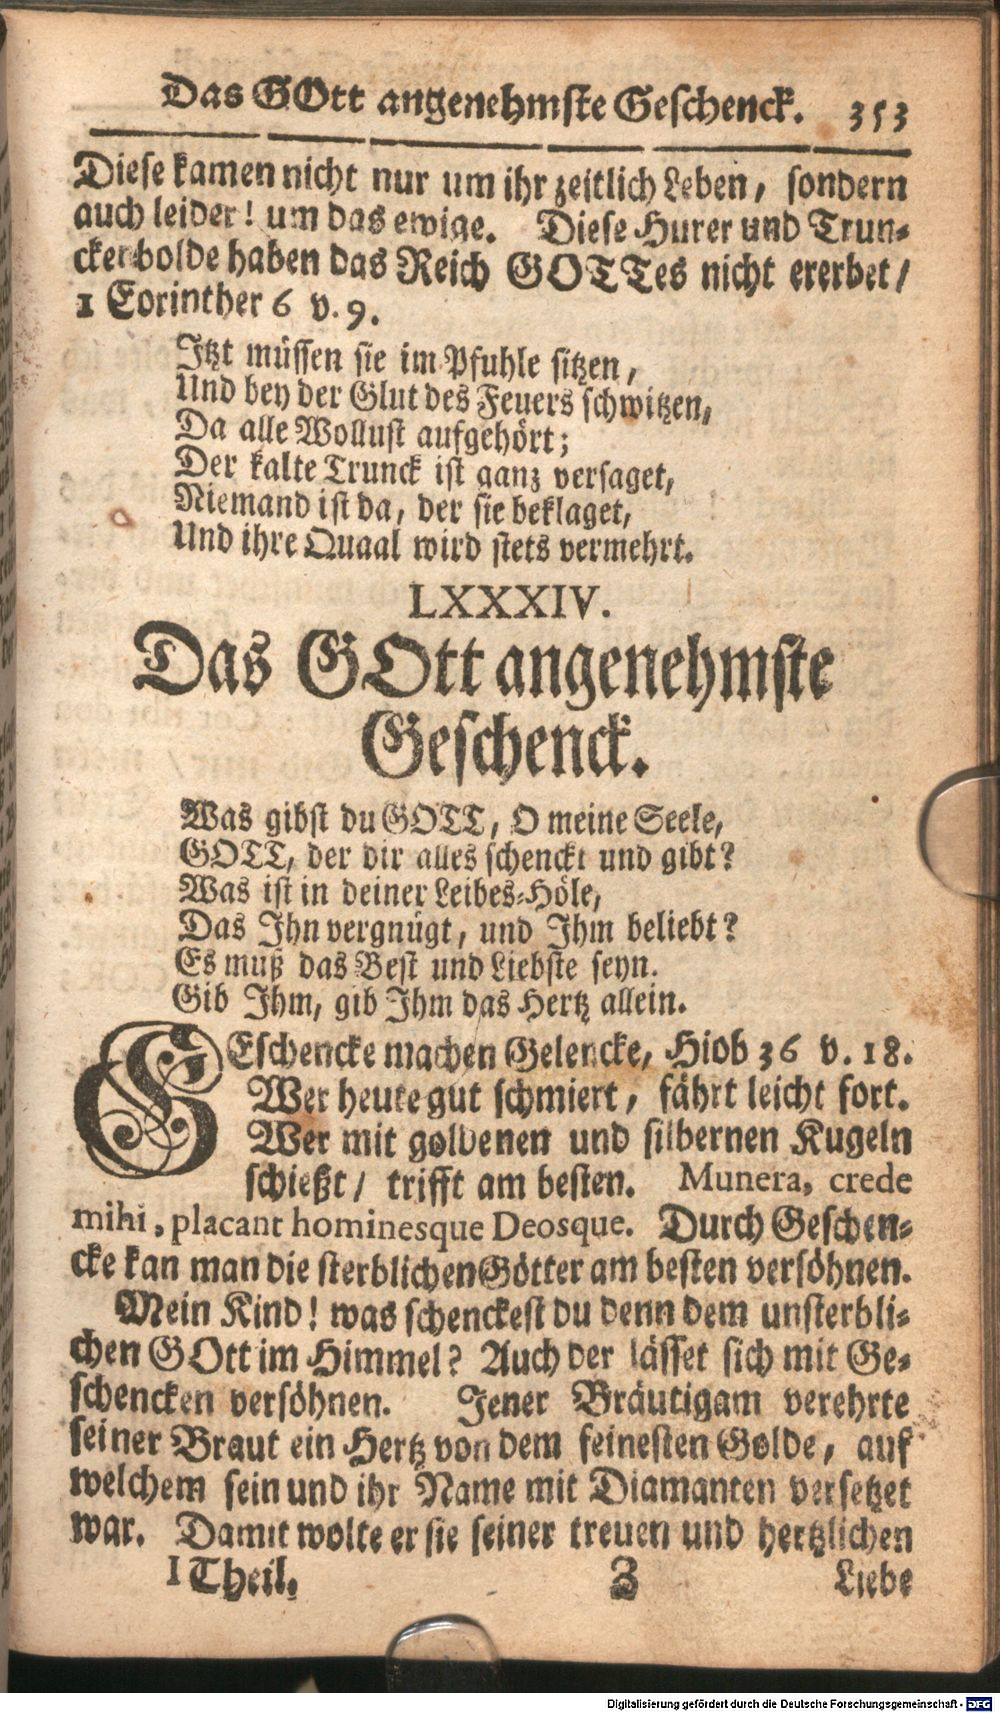 Das GOtt angenehmste Geschenck. 353
Diese kamen nicht nur um ihr zeitlich Leben, sondern
auch leider! um das ewige. Diese Hurer und Trun-
ckenbolde haben das Reich GOTTes nicht ererbet/
1 Corinther 6 v. 9.
Itzt müssen sie im Pfuhle sitzen,
Und bey der Glut des Feuers schwitzen,
Da alle Wollust aufgehört;
Der kalte Trunck ist ganz versaget,
Niemand ist da, der sie beklaget,
Und ihre Quaal wird stets vermehrt.
LXXXIV.
Das GOtt angenehmste
Geschenck.
Was gibst du GOTT, O meine Seele,
GOTT, der dir alles schenckt und gibt?
Was ist in deiner Leibes-Höle,
Das Ihn vergnügt, und Ihm beliebt?
Es muß das Best und Liebste seyn.
Gib Ihm, gib Ihm das Hertz allein.
GEschencke machen Gelencke, Hiob 36 v. 18.
Wer heute gut schmiert, fährt leicht fort.
Wer mit goldenen und silbernen Kugeln
schießt/ trifft am besten. Munera, crede
mihi, placant hominesque Deosque. Durch Geschen-
cke kan man die sterblichen Götter am besten versöhnen.
Mein Kind! was schenckest du denn dem unsterbli-
chen GOtt im Himmel? Auch der lässet sich mit Ge-
schencken versöhnen. Jener Bräutigam verehrte
seiner Braut ein Hertz von dem feinesten Golde, auf
welchem sein und ihr Name mit Diamanten versetzet
war. Damit wolte er sie seiner treuen und hertzlichen
I Theil. Z Liebe
Digitalisierung gefördert durch die Deutsche Forschungsgemeinschaft - DFG